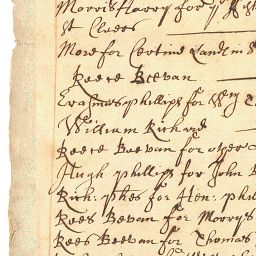 Morris Harry for ye
St Clears
More for Certine Land in
Reece Beevan
Erasmus phillips for Wm
William Richard
Reece Beevan for other
Hugh phillips for John B
Rich: phes for Hen: phil
Rees Bevan for Morrys
Rees Beevan for Thomas